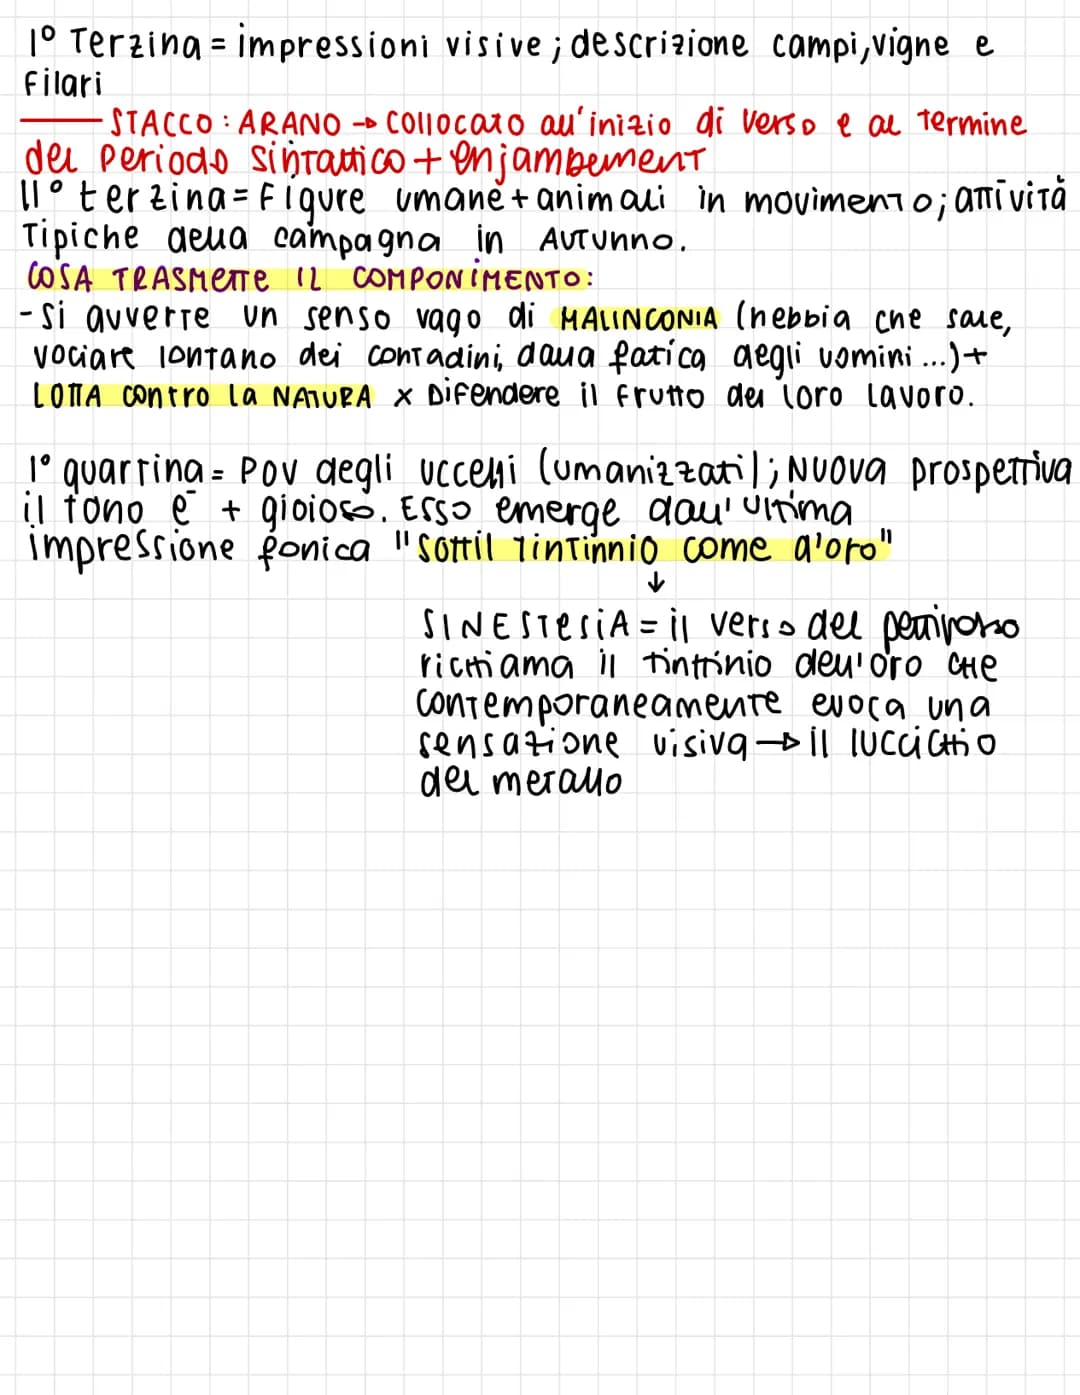 1° Terzina = impressioni visive; descrizione campi, vigne e
Filari
STACCO: ARANO → collocato all'inizio di verso e al termine
del periodo sintattico + enjambement
11° terzina = Figure umane + animali in movimento; attività
Tipiche della campagna in AUTUNNO.
COSA TRASMETTE IL COMPONIMENTO:
- Si avverte un senso vago di MALINCONIA (nebbia che sale,
vociare lontano dei contadini, dalla fatica degli uomini ...) +
LOTTA contro la NATURA x Difendere il frutto del loro lavoro.
1° quartina = POV degli uccelli (umanizzati); NUOVA prospettiva
il tono è + gioioso. Esso emerge dall'ultima
impressione fonica "sottil tintinnio come d'oro"
↓
SINESTESIA = il verso del pettirosso
richiama il tintinio dell'oro CHE
contemporaneamente evoca una
sensazione visiva → il luccichio
del metallo